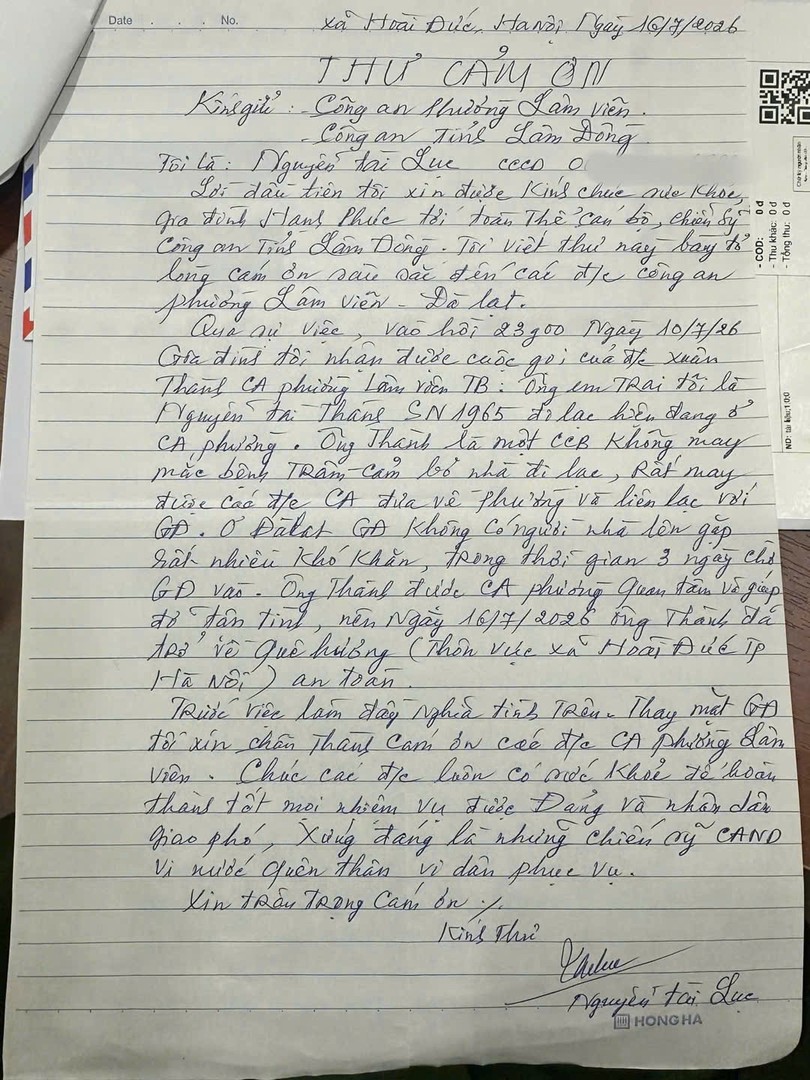 Date . . . No.
xã Hoài Đức, Hà Nội Ngày 16/7/2026
THƯ CẢM ƠN
Kính gửi : - Công an Phường Lâm Viên.
- Công an Tỉnh Lâm Đồng.
Tôi là : Nguyễn Tài Lục CCCD 0
Lời đầu tiên tôi xin được Kính chúc sức khỏe,
gia đình Hạnh Phúc tới toàn Thể cán bộ, chiến sỹ
Công an Tỉnh Lâm Đồng. Tôi viết thư này bày tỏ
lòng cảm ơn sâu sắc đến các đ/c công an
phường Lâm Viên - Đà lạt.
Qua sự việc, vào hồi 23g00 Ngày 10/7/26
Gia đình tôi nhận được cuộc gọi của đ/c Xuân
Thành CA phường Lâm viên TB : Ông em TRai tôi là
Nguyễn Tài Thành SN 1965 đi lạc hiện đang ở
CA phường. Ông Thành là một CCB Không may
mắc bệnh TRầm-Cảm bỏ nhà đi lạc, Rất may
được các đ/c CA đưa về Phường và liên lạc với
GĐ. Ở Đàlạt GĐ Không có người nhà lên gặp
rất nhiều Khó Khăn, trong thời gian 3 ngày chờ
GĐ vào. Ông Thành được CA phường Quan tâm và giúp
đỡ tận tình, nên Ngày 16/7/2026 ông Thành đã
trở về Quê hương (Thôn vực xã Hoài Đức TP
Hà Nội) an toàn.
TRước việc làm đầy Nghĩa tình TRên. Thay mặt GĐ
tôi xin chân Thành Cảm ơn các đ/c CA phường Lâm
viên. Chúc các đ/c luôn có sức Khoẻ để hoàn
thành tốt mọi nhiệm vụ được Đảng và nhân dân
giao phó, Xứng đáng là những chiến sỹ CAND
Vì nước Quên thân vì dân phục vụ.
Xin TRân TRọng Cảm ơn ./.
Kính Thư
Nguyễn Tài Lục
HONG HA
- COD: 0 đ
- Thu khác: 0 đ
- Tổng thu: 0 đ